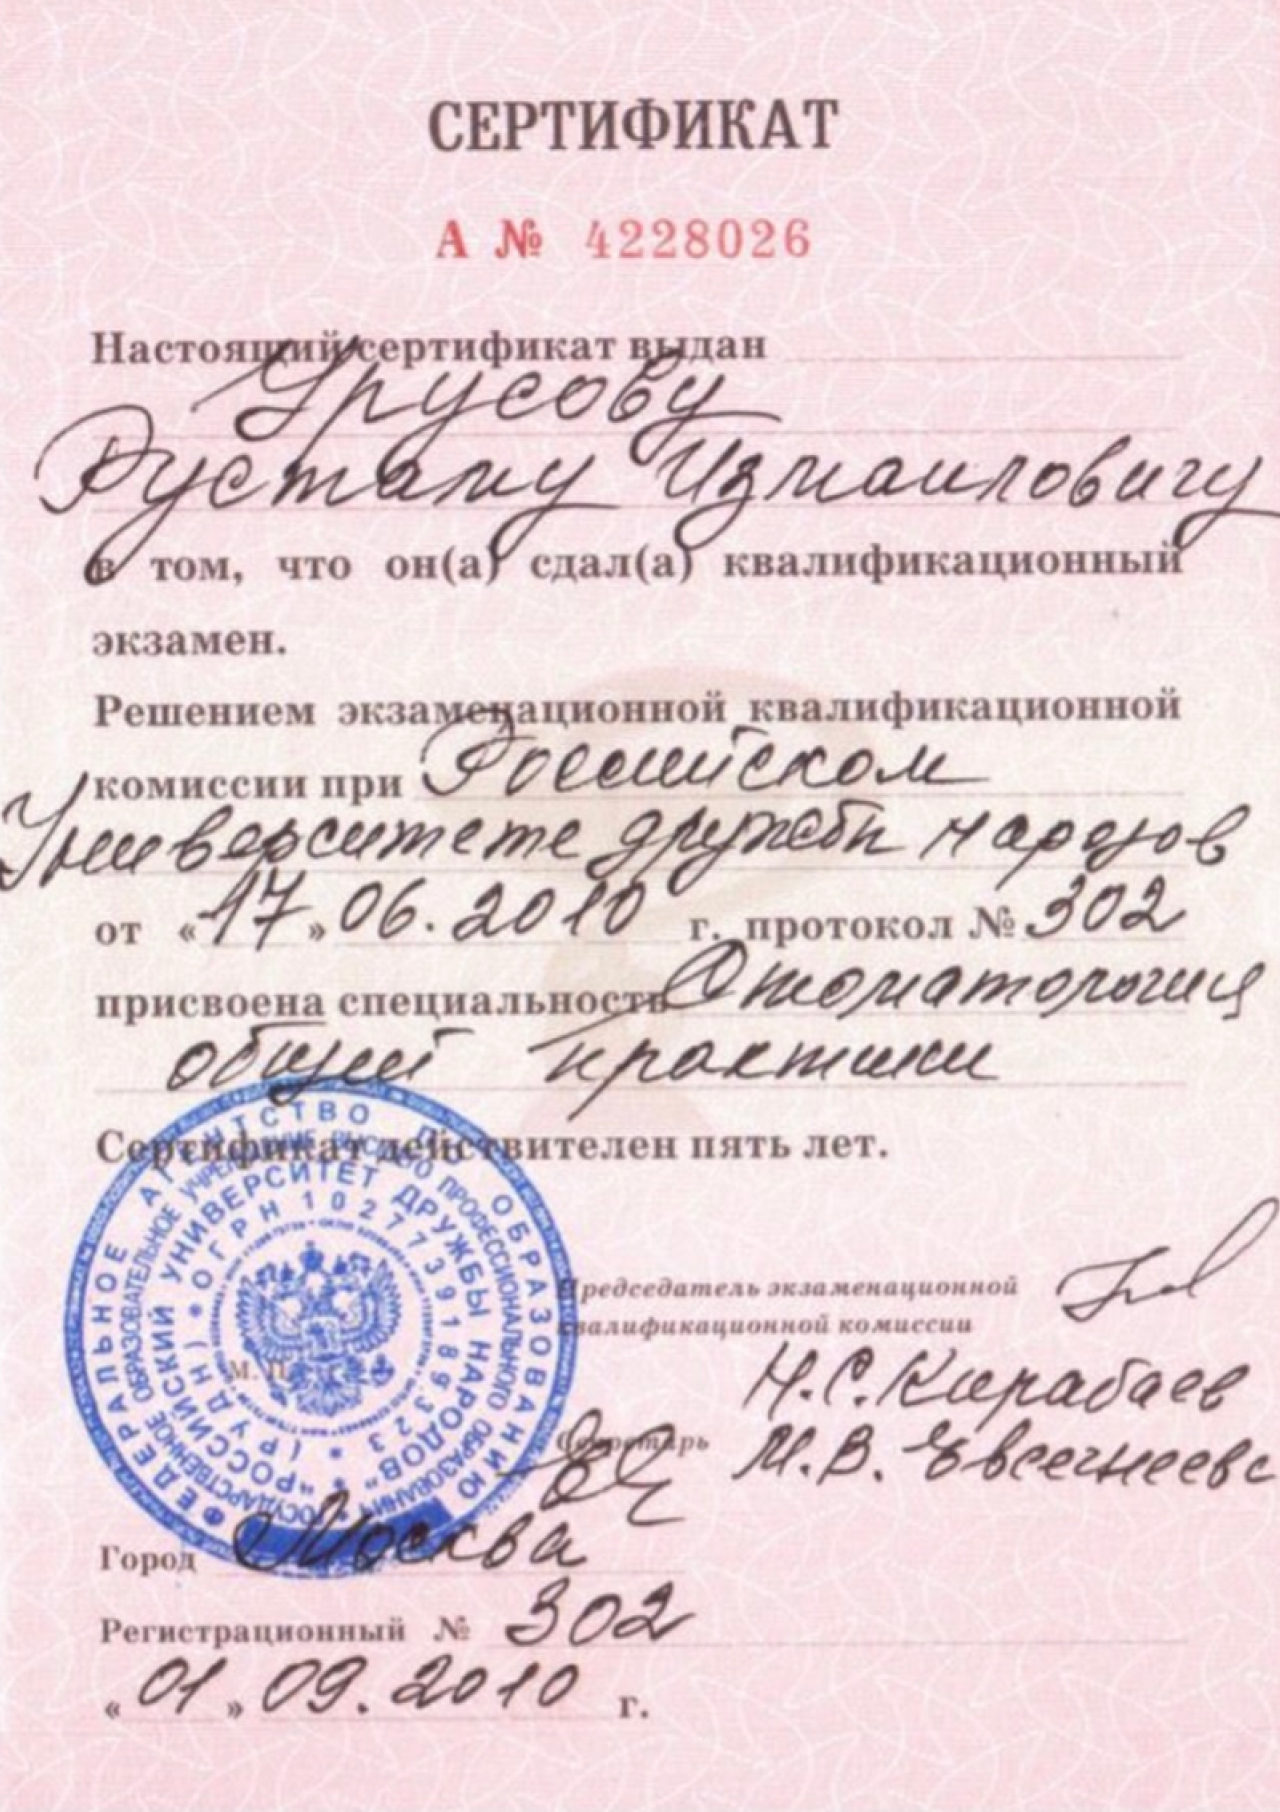 СЕРТИФИКАТ
А № 4228026
Настоящий сертификат выдан
Урусову
Рустаму Измаиловичу
в том, что он(а) сдал(а) квалификационный
экзамен.
Решением экзаменационной квалификационной
комиссии при Российском
Университете дружбы народов
от «17» 06.2010 г. протокол № 302
присвоена специальность Стоматология
общей практики
Сертификат действителен пять лет.
ФЕДЕРАЛЬНОЕ АГЕНТСТВО ПО ОБРАЗОВАНИЮ
ГОСУДАРСТВЕННОЕ ОБРАЗОВАТЕЛЬНОЕ УЧРЕЖДЕНИЕ ВЫСШЕГО ПРОФЕССИОНАЛЬНОГО ОБРАЗОВАНИЯ
"РОССИЙСКИЙ УНИВЕРСИТЕТ ДРУЖБЫ НАРОДОВ"
(РУДН) * ОГРН 1027739189323 *
М. П.
Председатель экзаменационной
квалификационной комиссии
Н.С. Кирабаев
Секретарь М.В.
Город Москва
Регистрационный № 302
«01» 09.2010 г.